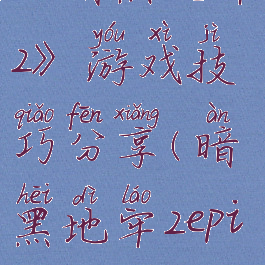 yóu xì jì
2》 游戏技
qiǎo fēn xiǎng àn
巧分享(暗
hēi dì láo
黑地牢2epi